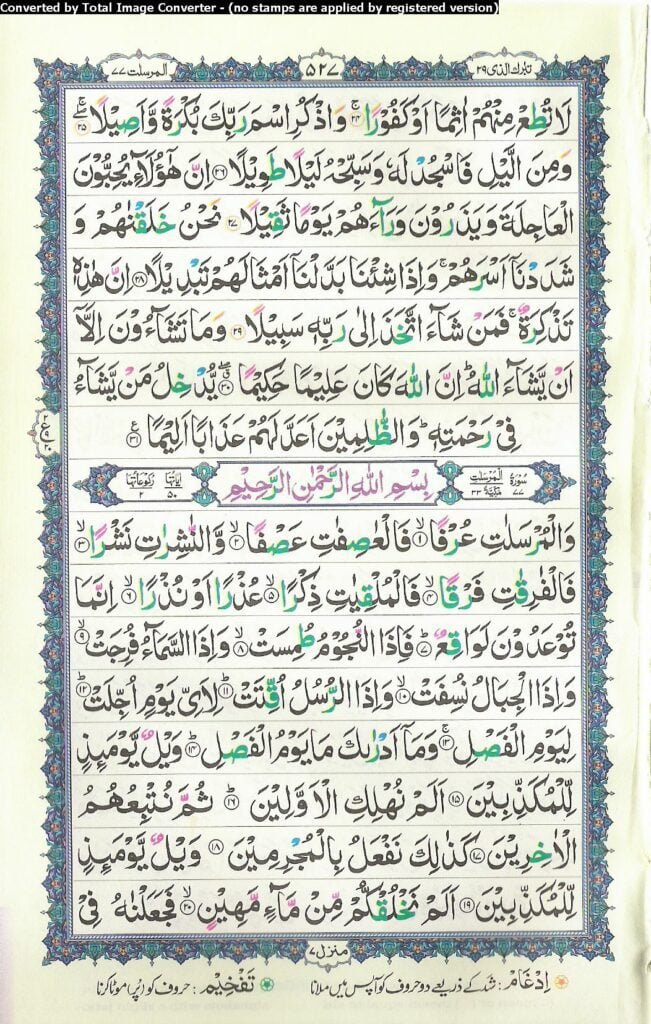 Converted by Total Image Converter - (no stamps are applied by registered version)
تبٰرك الذی ۲۹
۵۲۷
المرسلٰت ۷۷
لَا تُطِعْ مِنْهُمْ اٰثِمًا اَوْ كَفُوْرًا ۲۴ ۚ وَاذْكُرِ اسْمَ رَبِّكَ بُكْرَةً وَّاَصِيْلًا ۲۵
وَمِنَ الَّيْلِ فَاسْجُدْ لَهٗ وَسَبِّحْهُ لَيْلًا طَوِيْلًا ۲۶ اِنَّ هٰٓؤُلَآءِ يُحِبُّوْنَ
الْعَاجِلَةَ وَيَذَرُوْنَ وَرَآءَهُمْ يَوْمًا ثَقِيْلًا ۲۷ نَحْنُ خَلَقْنٰهُمْ وَ
شَدَدْنَآ اَسْرَهُمْ ۚ وَاِذَا شِئْنَا بَدَّلْنَآ اَمْثَالَهُمْ تَبْدِيْلًا ۲۸ اِنَّ هٰذِهٖ
تَذْكِرَةٌ ۚ فَمَنْ شَآءَ اتَّخَذَ اِلٰى رَبِّهٖ سَبِيْلًا ۲۹ وَمَا تَشَآءُوْنَ اِلَّآ
اَنْ يَّشَآءَ اللّٰهُ ؕ اِنَّ اللّٰهَ كَانَ عَلِيْمًا حَكِيْمًا ۳۰ يُّدْخِلُ مَنْ يَّشَآءُ
فِيْ رَحْمَتِهٖ ؕ وَالظّٰلِمِيْنَ اَعَدَّ لَهُمْ عَذَابًا اَلِيْمًا ۳۱
سُوْرَةُ الْمُرْسَلٰتِ مَكِّيَّةٌ ۷۷ ۳۳
بِسْمِ اللّٰهِ الرَّحْمٰنِ الرَّحِيْمِ
اٰيَاتُهَا ۵۰ رُكُوْعَاتُهَا ۲
وَالْمُرْسَلٰتِ عُرْفًا ۱ فَالْعٰصِفٰتِ عَصْفًا ۲ وَّالنّٰشِرٰتِ نَشْرًا ۳
فَالْفٰرِقٰتِ فَرْقًا ۴ فَالْمُلْقِيٰتِ ذِكْرًا ۵ عُذْرًا اَوْ نُذْرًا ۶ اِنَّمَا
تُوْعَدُوْنَ لَوَاقِعٌ ۷ فَاِذَا النُّجُوْمُ طُمِسَتْ ۸ وَاِذَا السَّمَآءُ فُرِجَتْ ۹
وَاِذَا الْجِبَالُ نُسِفَتْ ۱۰ وَاِذَا الرُّسُلُ اُقِّتَتْ ۱۱ لِاَيِّ يَوْمٍ اُجِّلَتْ ۱۲
لِيَوْمِ الْفَصْلِ ۱۳ وَمَآ اَدْرٰىكَ مَا يَوْمُ الْفَصْلِ ۱۴ وَيْلٌ يَّوْمَئِذٍ
لِّلْمُكَذِّبِيْنَ ۱۵ اَلَمْ نُهْلِكِ الْاَوَّلِيْنَ ۱۶ ثُمَّ نُتْبِعُهُمُ
الْاٰخِرِيْنَ ۱۷ كَذٰلِكَ نَفْعَلُ بِالْمُجْرِمِيْنَ ۱۸ وَيْلٌ يَّوْمَئِذٍ
لِّلْمُكَذِّبِيْنَ ۱۹ اَلَمْ نَخْلُقْكُّمْ مِّنْ مَّآءٍ مَّهِيْنٍ ۲۰ فَجَعَلْنٰهُ فِيْ
منزل ۷
اِدْغَام: شد کے ذریعے دو حروف کو آپس میں ملانا
تَفْخِيْم: حروف کو (پُر) موٹا کرنا